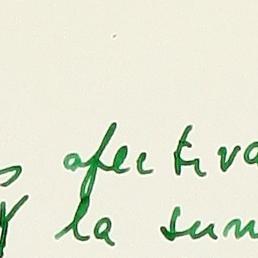 afectiva
la sum